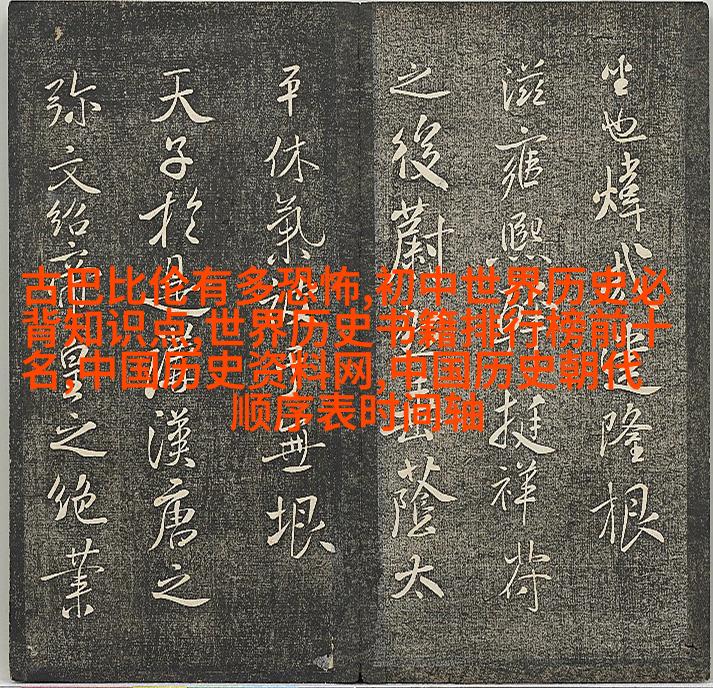 古巴比伦有多恐怖,初中世界历史必
背知识点,世界历史书籍排行榜前十
名,中国历史资料网,中国历史朝代
顺序表时间轴
也煒隆根
滋雍熙挺祥符
之後蔚蔭太
平休氣無垠
天子於是漢唐之
弥文紹皇之絶業